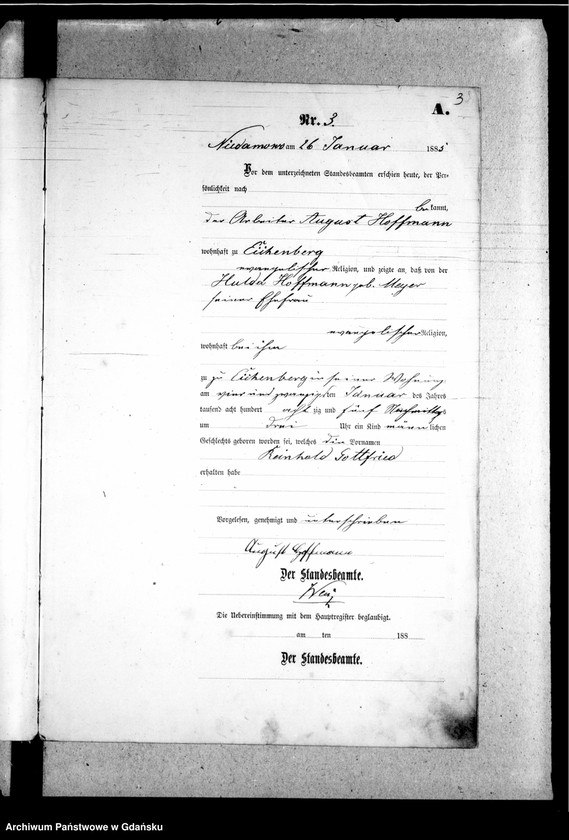 3
A.
Nr. 3.
am 26 Januar 1885
Vor dem unterzeichneten Standesbeamten erschien heute, der Per-
sönlichkeit nach
be kannt,
der Arbeiter August Hoffmann
wohnhaft zu
evangelischer Religion, und zeigte an, daß von der
Hulda Hoffmann geb. Meyer
seiner Ehefrau
evangelischer Religion,
wohnhaft bei ihm
zu zu in seiner Wohnung
am vier und zwanzigsten Januar des Jahres
tausend acht hundert acht zig und fünf Nachmittags
um drei Uhr ein Kind männ lichen
Geschlechts geboren worden sei, welches die Vornamen
Reinhold Gottfried
erhalten habe
Vorgelesen, genehmigt und unterschrieben
August Hoffmann
Der Standesbeamte.
Die Uebereinstimmung mit dem Hauptregister beglaubigt.
am ten 188
Der Standesbeamte.
Archiwum Państwowe w Gdańsku